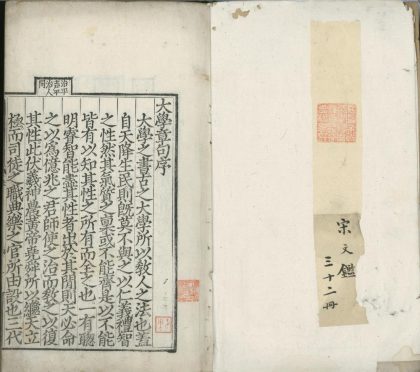 宋文鑑
三十二冊
大學章句序
大學之書古之大學所以教人之法也蓋
自天降生民則既莫不與之以仁義禮智
之性然其氣質之稟或不能齊是以不能
皆有以知其性之所有而全之也一有聰
明睿智能盡其性者出於其間則天必命
之以為億兆之君師使之治而教之以復
其性此伏羲神農黃帝堯舜所以繼天立
極而司徒之職典樂之官所由設也三代